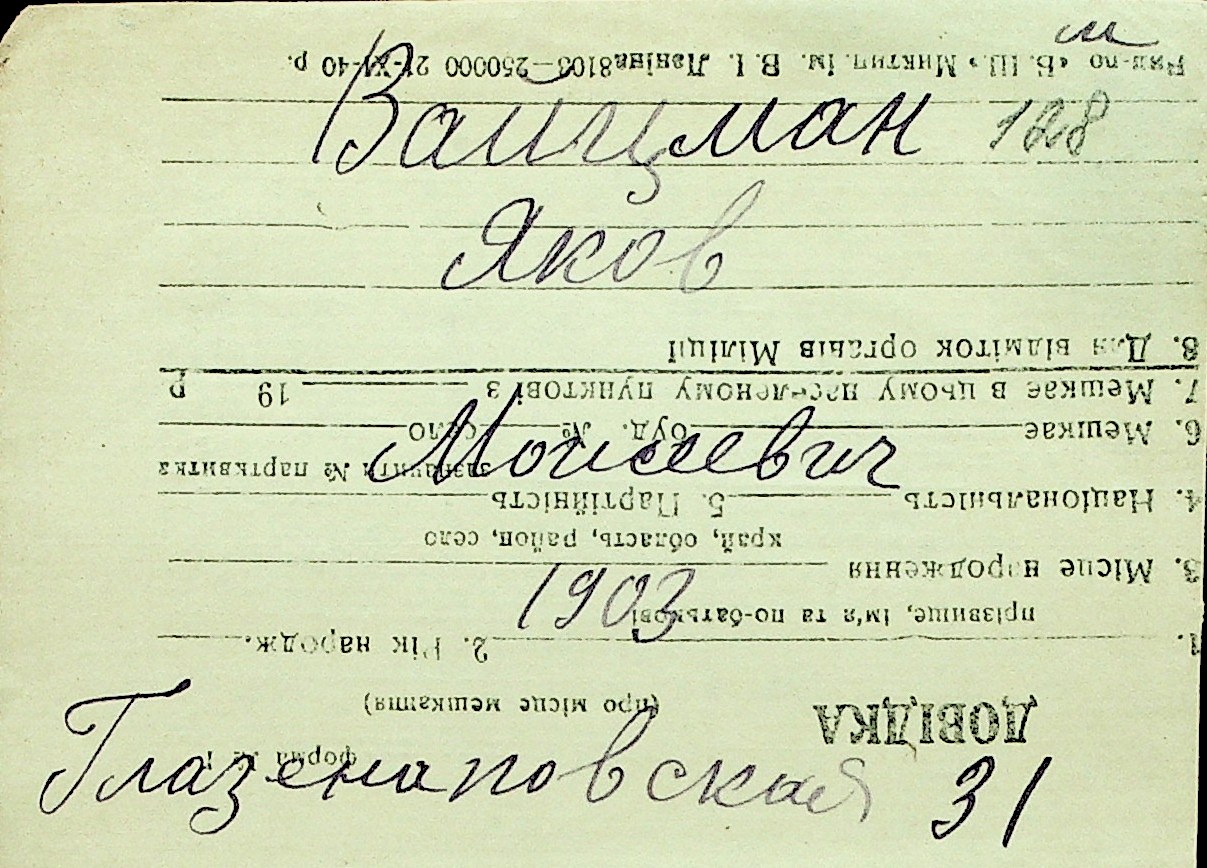 м
Вайцман 128
Яков
Моисеевич
1903
Глазенаповская 31
форма № 1
ДОВІДКА
(про місце мешкання)
1. 2. Рік народж.
прізвище, ім'я та по-батькові
3. Місце народження
край, область, район, село
4. Національність 5. Партійність
зазначити № партквитка
6. Мешкає буд. № село
7. Мешкає в цьому населеному пунктові з 19 р.
8. Для відміток органів Міліції
В. І. Леніна 8103—250000 21-XI-40 р.